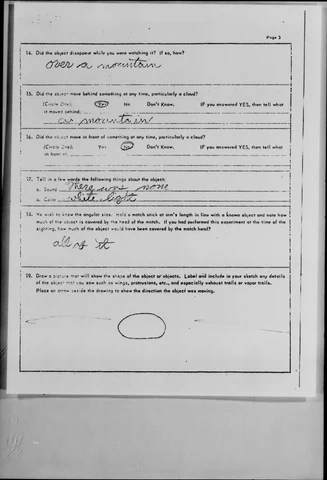 Page 3
14. Did the object disappear while you were watching it? If so, how?
over a mountain
15. Did the object move behind something at any time, particularly a cloud?
(Circle One): Yes No Don't Know. IF you answered YES, then tell what
it moved behind:
a mountain
16. Did the object move in front of something at any time, particularly a cloud?
(Circle One): Yes No Don't Know. IF you answered YES, then tell what
in front of:
17. Tell in a few words the following things about the object:
a. Sound There was none
b. Color white light
18. We wish to know the angular size. Hold a match stick at arm's length in line with a known object and note how
much of the object is covered by the head of the match. If you had performed this experiment at the time of the
sighting, how much of the object would have been covered by the match head?
all of it
19. Draw a picture that will show the shape of the object or objects. Label and include in your sketch any details
of the object that you saw such as wings, protrusions, etc., and especially exhaust trails or vapor trails.
Place an arrow beside the drawing to show the direction the object was moving.